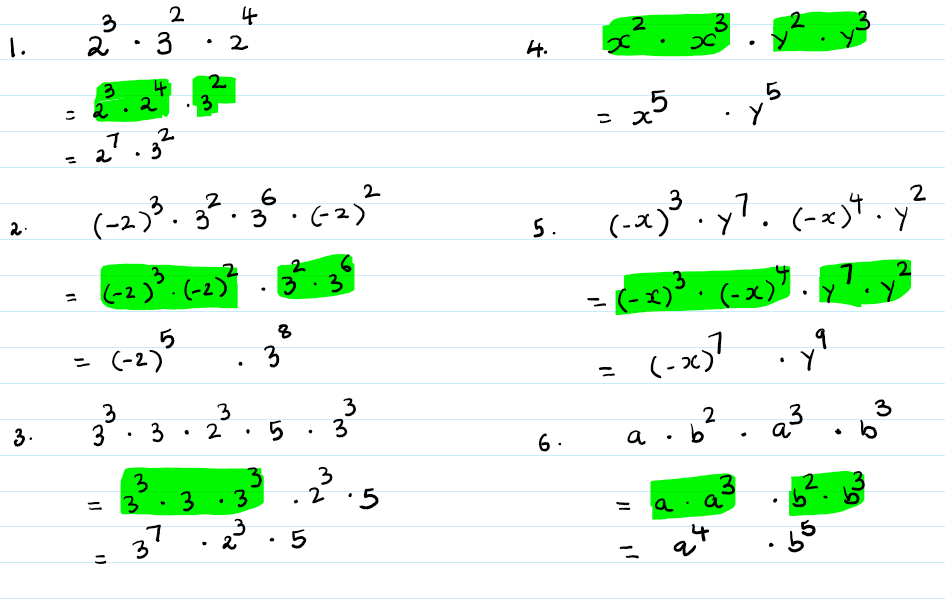 1. 2³ · 3² · 2⁴
= 2³ · 2⁴ · 3²
= 2⁷ · 3²
2. (-2)³ · 3² · 3⁶ · (-2)²
= (-2)³ · (-2)² · 3² · 3⁶
= (-2)⁵ · 3⁸
3. 3³ · 3 · 2³ · 5 · 3³
= 3³ · 3 · 3³ · 2³ · 5
= 3⁷ · 2³ · 5
4. x² · x³ · y² · y³
= x⁵ · y⁵
5. (-x)³ · y⁷ · (-x)⁴ · y²
= (-x)³ · (-x)⁴ · y⁷ · y²
= (-x)⁷ · y⁹
6. a · b² · a³ · b³
= a · a³ · b² · b³
= a⁴ · b⁵